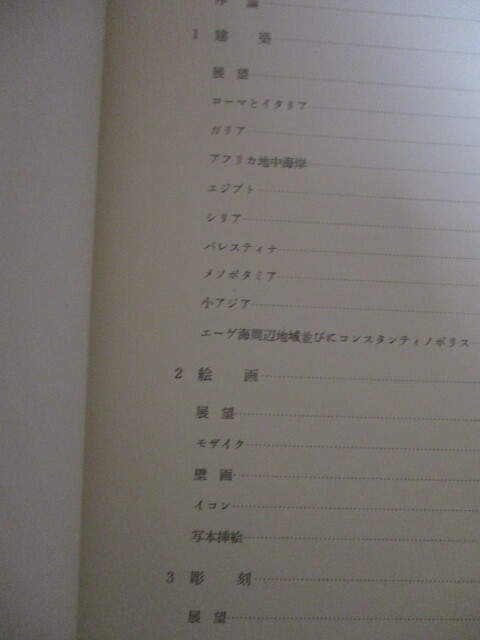 序 論
1 建 築
展 望
ローマとイタリア
ガリア
アフリカ地中海岸
エジプト
シリア
パレスティナ
メソポタミア
小アジア
エーゲ海周辺地域並びにコンスタンティノポリス
2 絵 画
展 望
モザイク
壁 画
イコン
写本挿絵
3 彫 刻
展 望